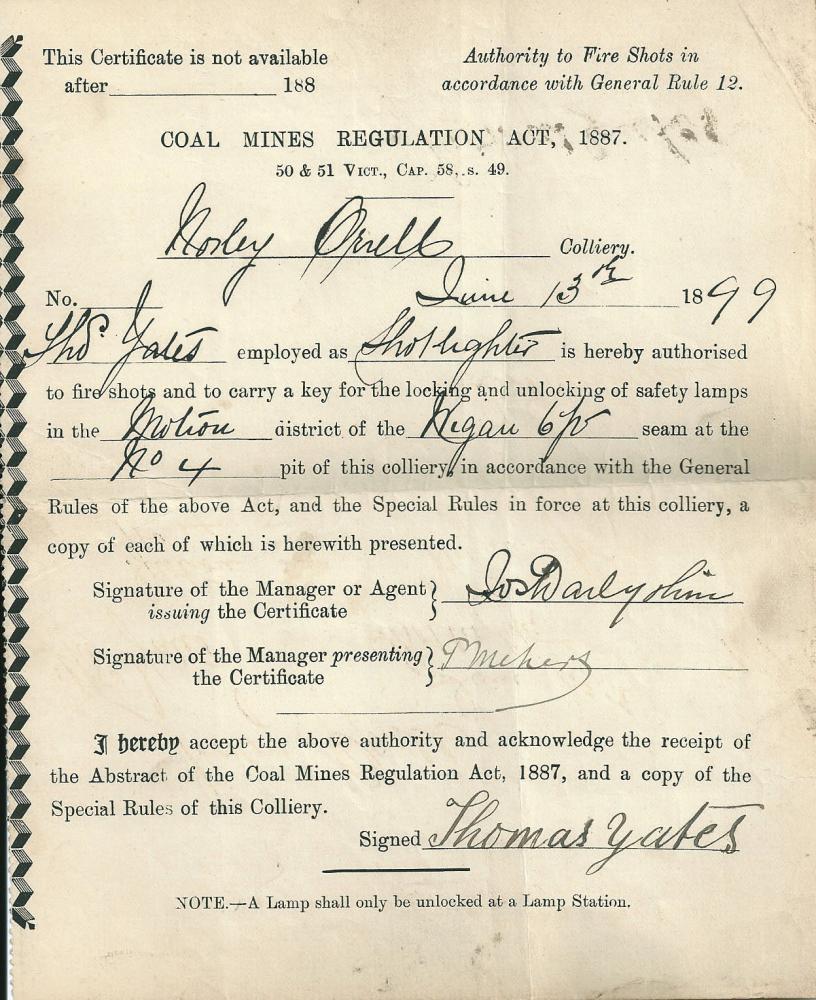 This Certificate is not available
after 188
Authority to Fire Shots in
accordance with General Rule 12.
COAL MINES REGULATION ACT, 1887.
50 & 51 VICT., CAP. 58, s. 49.
Norley Orrell Colliery.
No. June 13th 1899
Thos Yates employed as Shotlighter is hereby authorised
to fire shots and to carry a key for the locking and unlocking of safety lamps
in the district of the Wigan 6ft seam at the
No 4 pit of this colliery, in accordance with the General
Rules of the above Act, and the Special Rules in force at this colliery, a
copy of each of which is herewith presented.
Signature of the Manager or Agent } Jos Darbyshire
issuing the Certificate
Signature of the Manager presenting }
the Certificate
I hereby accept the above authority and acknowledge the receipt of
the Abstract of the Coal Mines Regulation Act, 1887, and a copy of the
Special Rules of this Colliery.
Signed Thomas Yates
NOTE.—A Lamp shall only be unlocked at a Lamp Station.